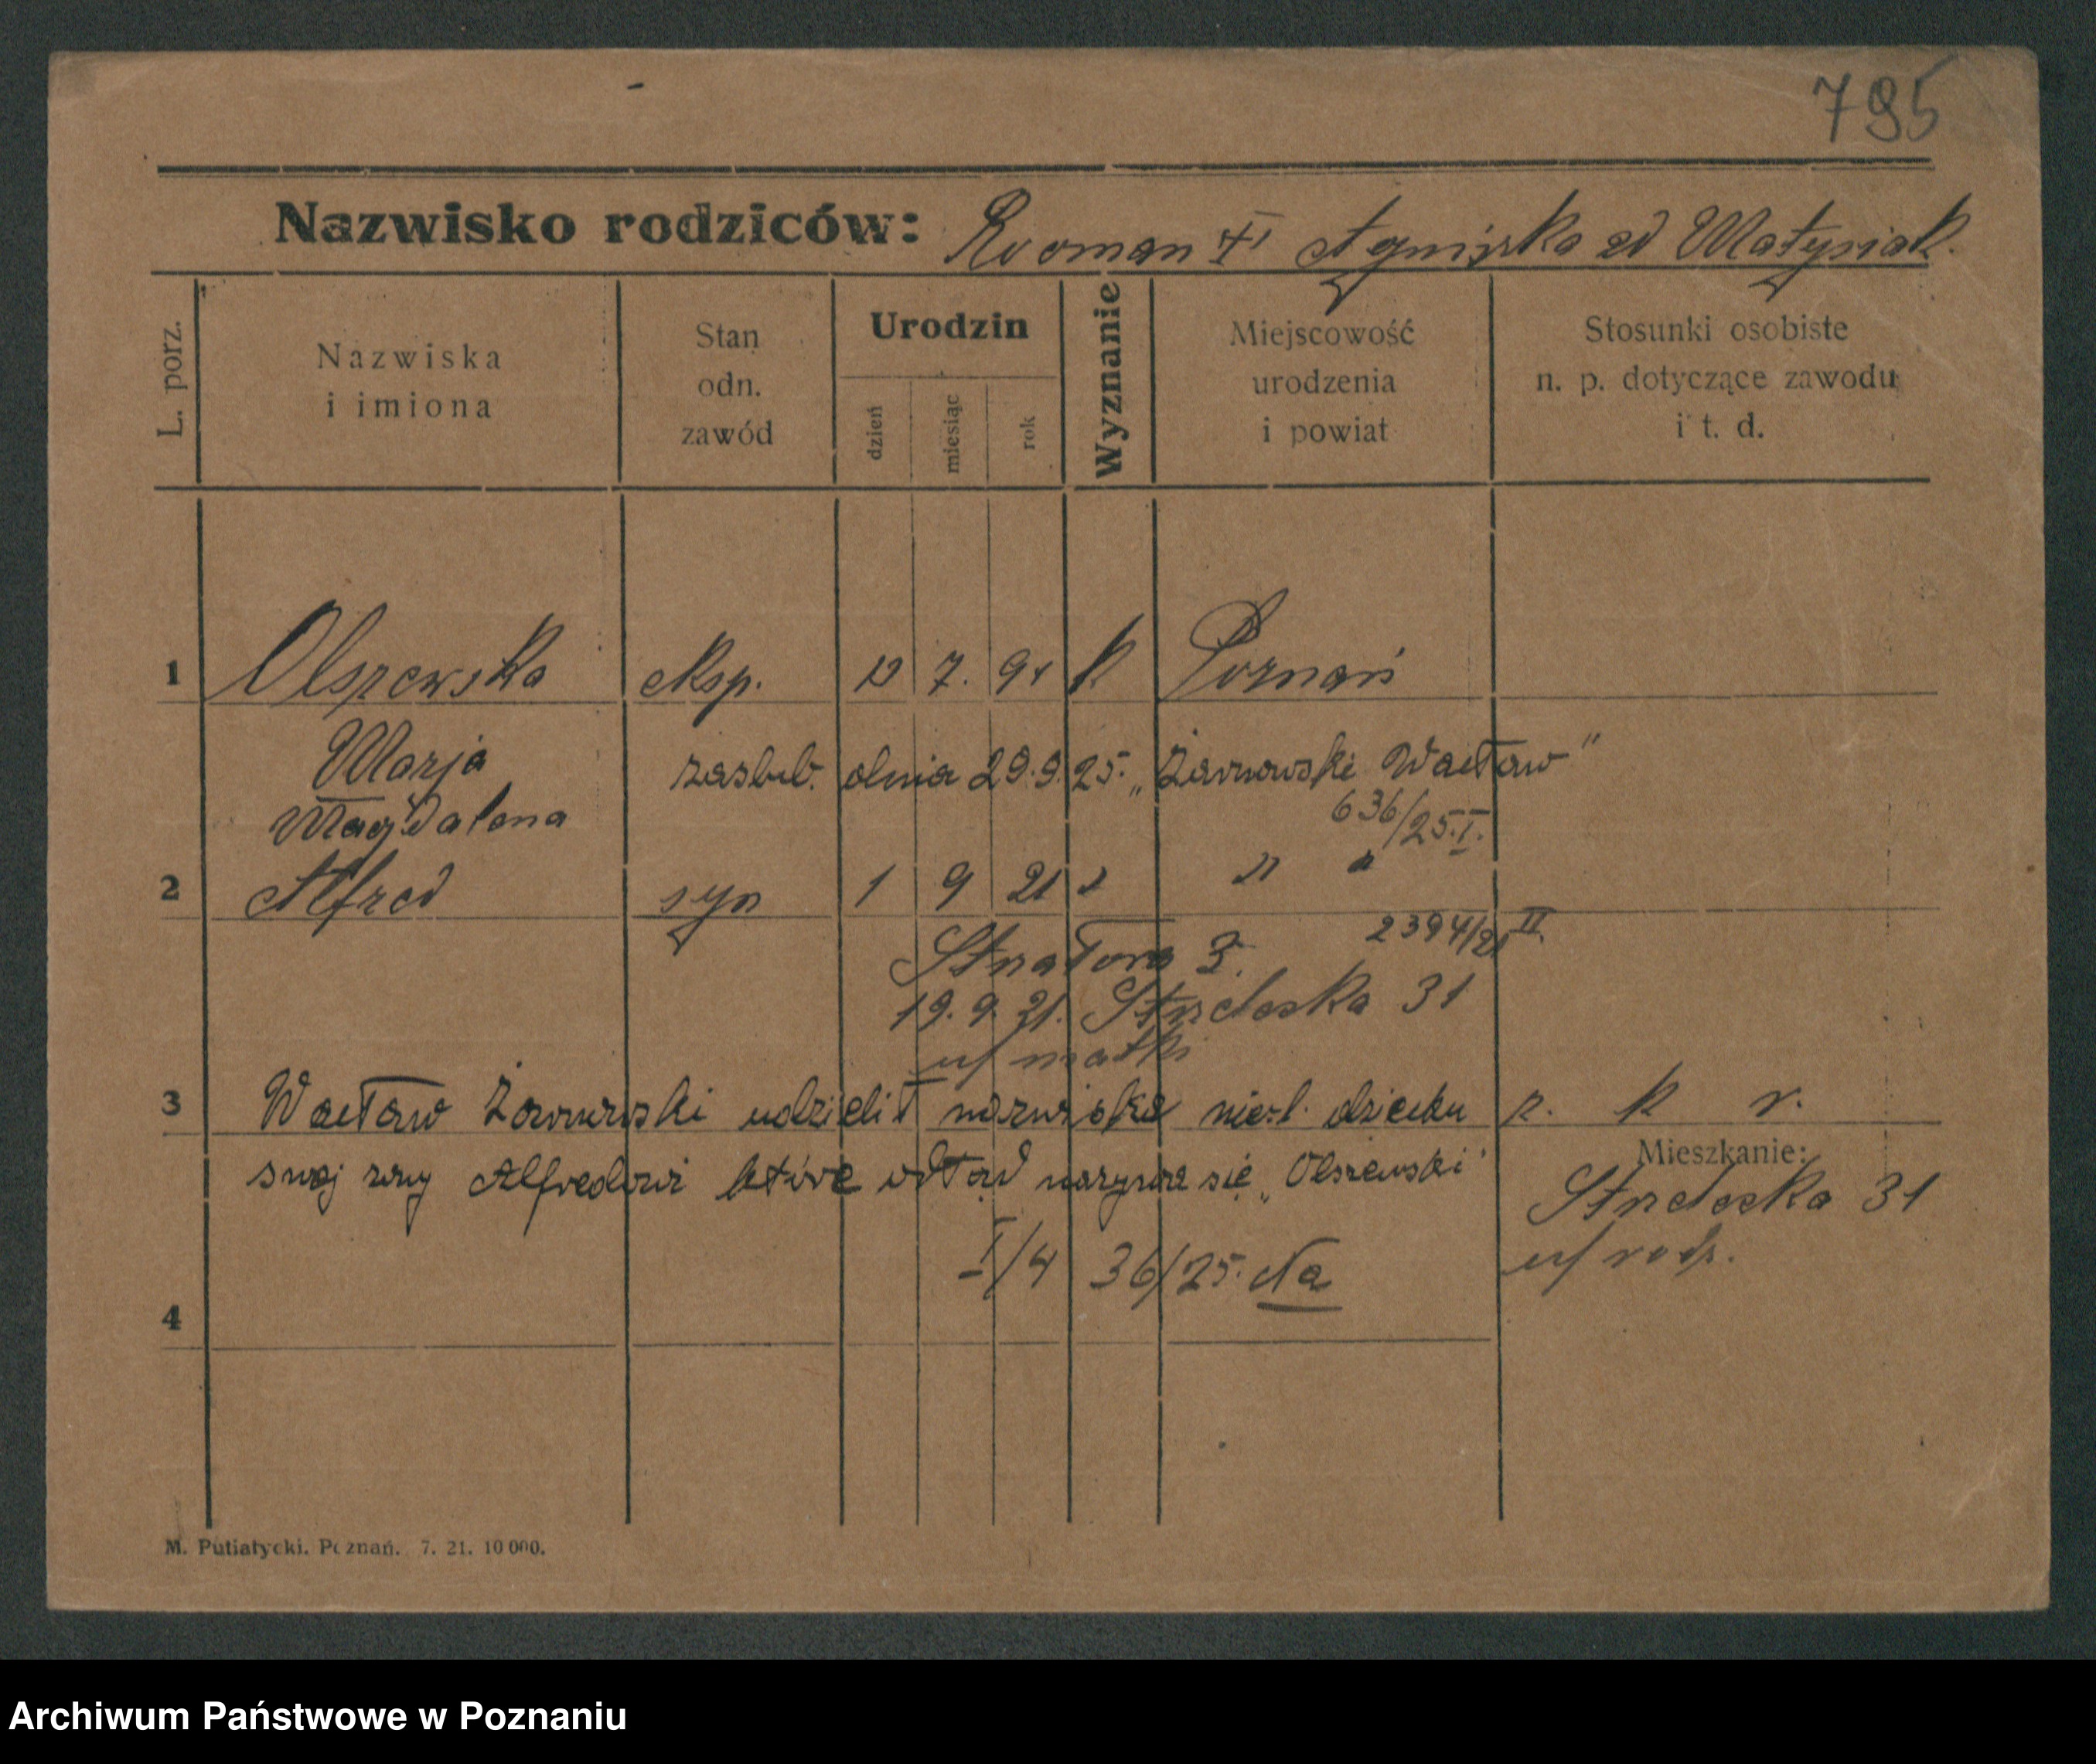 795
Nazwisko rodziców: Roman i Agnieszka zd Matysiak.
L. porz.
Nazwiska
i imiona
Stan
odn.
zawód
Urodzin
dzień
miesiąc
rok
Wyznanie
Miejscowość
urodzenia
i powiat
Stosunki osobiste
n. p. dotyczące zawodu
i t. d.
1 Olszewska eksp. 7. 94 k Poznań
Marja
Magdalena
zaslub. dnia 29.9.25. „Żarnowski Wacław"
636/25.I.
2 Alfred syn 1 9 21 " " "
2394/21 II
3.
19.9.21. Strzelecka 31
u/ matki
3 Wacław Żarnowski udzielił nazwiska nieśl. dziecku
swej żony Alfredowi które odtąd nazywa się „Olszewski"
I/4 36/25. Na
r. k r.
Mieszkanie:
Strzelecka 31
u/ rodz.
4
M. Putiatycki. Poznań. 7. 21. 10 000.
Archiwum Państwowe w Poznaniu